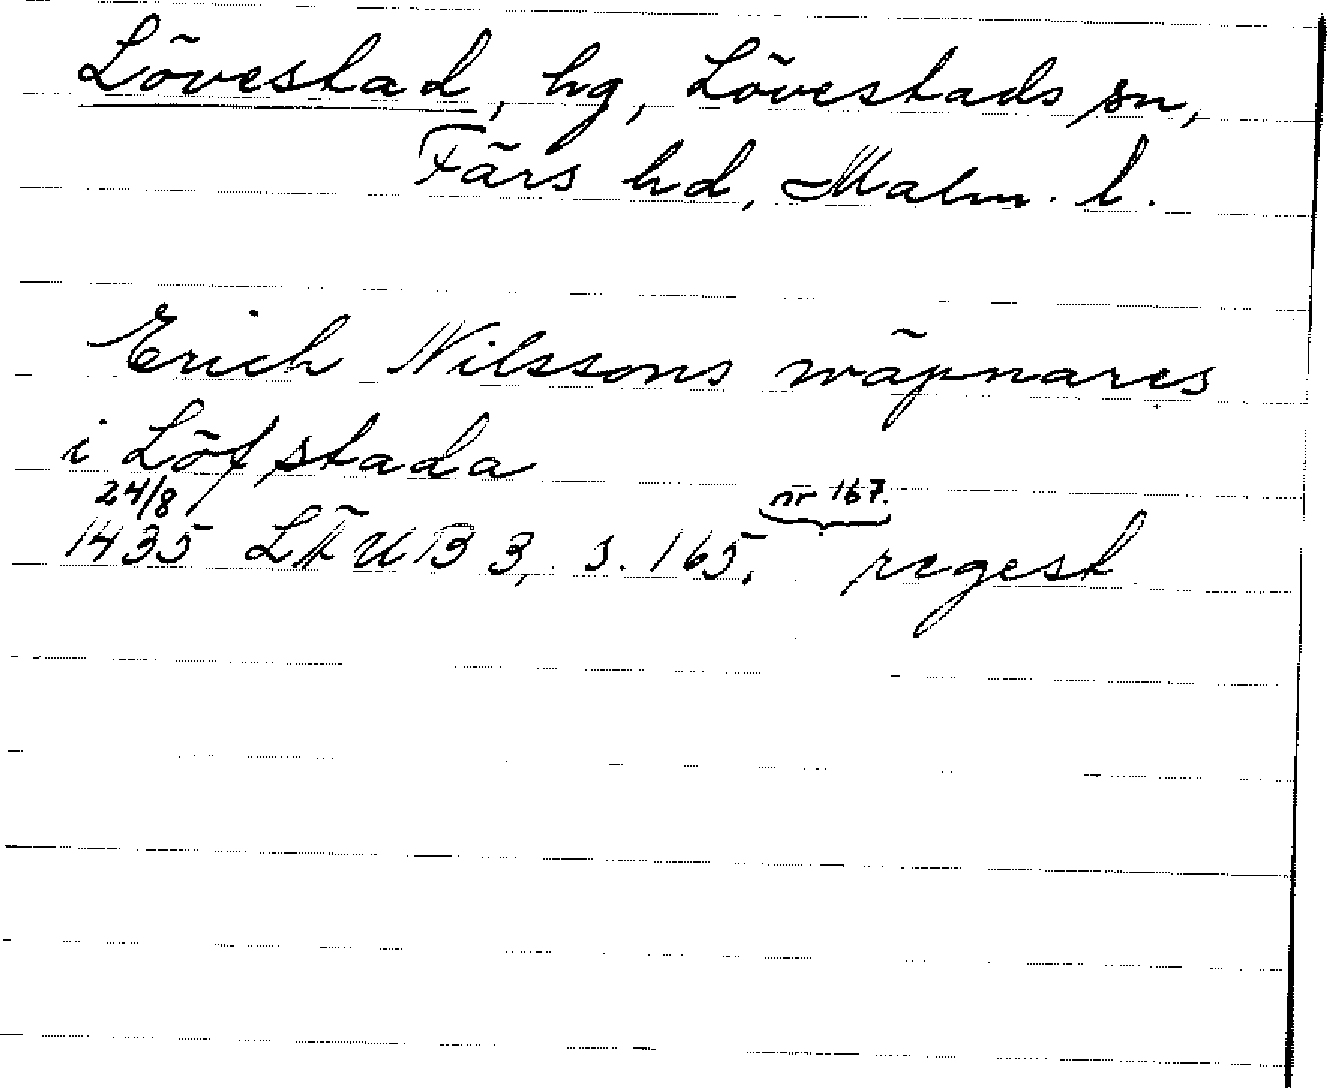 Lövestad, hg, Lövestads sn,
Färs hd, Malm. l.
Erich Nilssons wäpnares
i Löfstada
24/8
nr 167.
1435 LÄUB 3, s. 165, regest